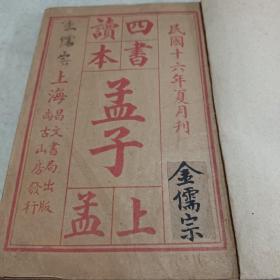 民國十六年夏月刊
四書
讀本
孟子
上
孟
上海
昌文書局出版
尚古山房發行
金儒宗
儒宗